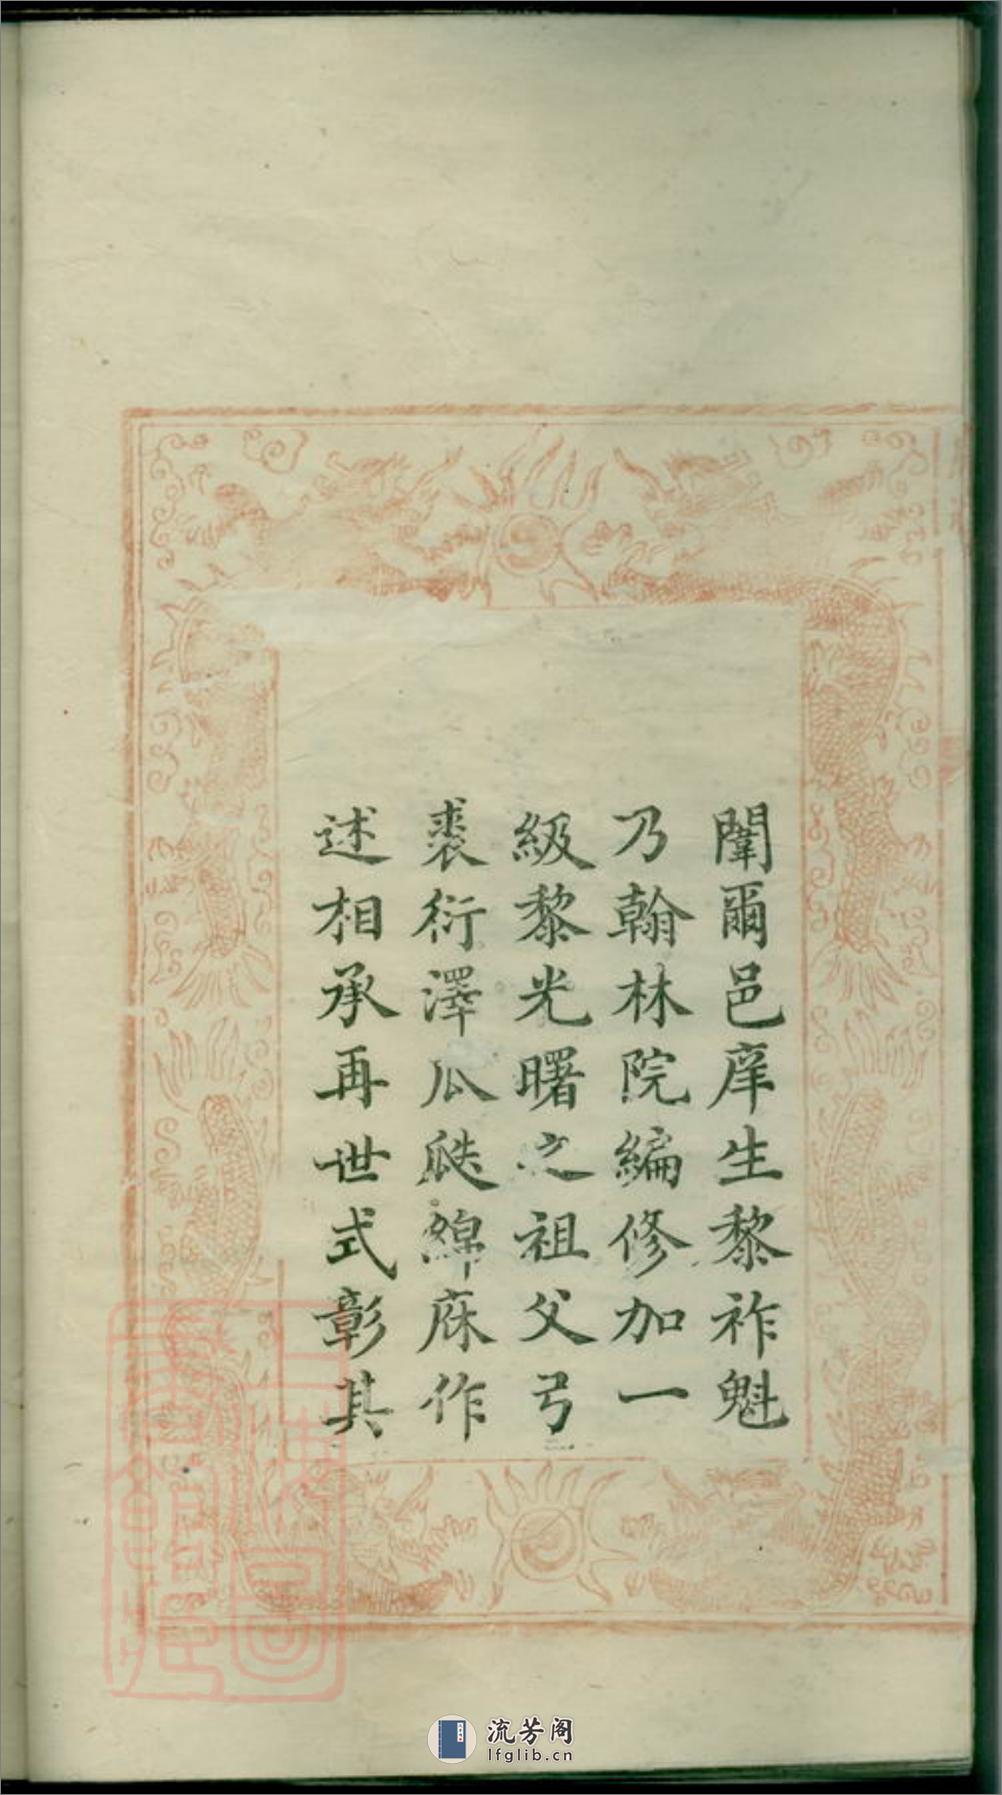 闈爾邑庠生黎祚魁
乃翰林院編修加一
級黎光曙之祖父弓
裘衍澤瓜瓞綿庥作
述相承再世式彰其
上海圖書館藏
流芳阁
lfglib.cn